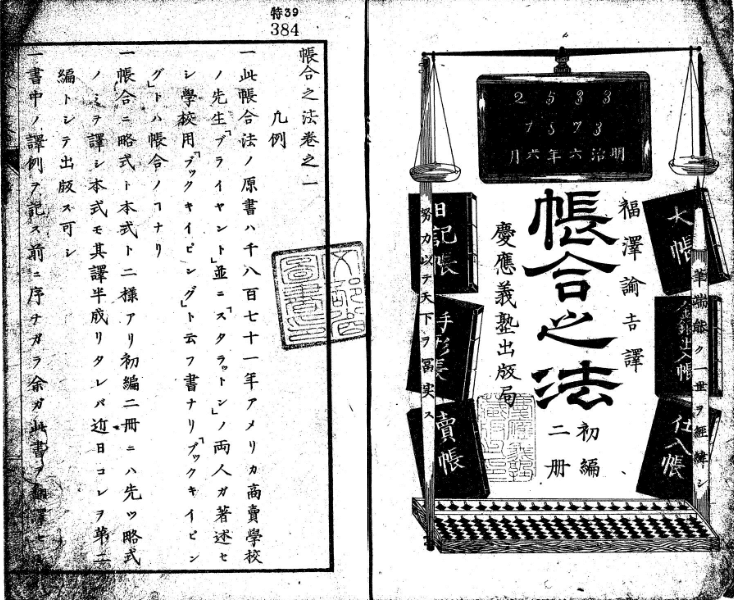 2533
1873
明治六年六月
大帳
金銀出入帳
仕入帳
筆端能ク一世ヲ經緯シ
福澤諭吉譯
帳合之法
初編
二冊
慶應義塾出版局
努力以テ天下ヲ冨実ス
日記帳
手形帳
賣帳
特39
384
帳合之法卷之一
凡例
一此帳合法ノ原書ハ千八百七十一年アメリカ商賣學校
ノ先生「ブライヤント」並ニ「スタラットン」ノ両人ガ著述セ
シ學校用「ブックキイピング」ト云フ書ナリ「ブックキイピン
グ」トハ帳合ノヿナリ
一帳合ニ略式ト本式ト二様アリ初編二冊ニハ先ツ略式
ノミヲ譯シ本式モ其譯半成リタレバ近日コレヲ第二
編トシテ出版ス可シ
一書中ノ譯例ヲ記ス前ニ序ナガラ余ガ此書ヲ翻譯セ